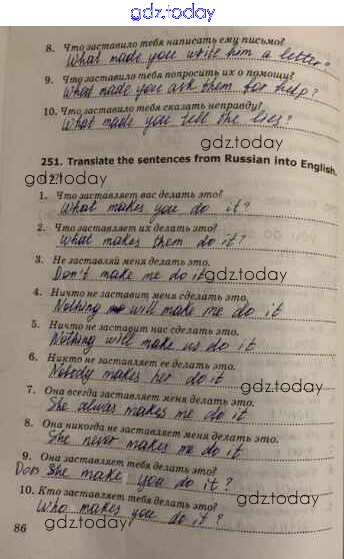 gdz.today
8. Что заставило тебя написать ему письмо?
What made you write him a letter?
9. Что заставило тебя попросить их о помощи?
What made you ask them for help?
10. Что заставило тебя сказать неправду?
What made you tell the lies?
gdz.today
251. Translate the sentences from Russian into English.
gdz.today
1. Что заставляет вас делать это?
What makes you do it?
2. Что заставляет их делать это?
What makes them do it?
3. Не заставляй меня делать это.
Don't make me do it
gdz.today
4. Ничто не заставит меня сделать это.
Nothing will make me do it
5. Ничто не заставит нас сделать это.
Nothing will make us do it
gdz.today
6. Никто не заставляет ее делать это.
Nobody makes her do it
gdz.today
7. Она всегда заставляет меня делать это.
She alwas makes me do it
8. Она никогда не заставляет меня делать это.
She never makes me do it
gdz.today
9. Она заставляет тебя делать это?
Does She make you do it?
10. Кто заставляет тебя делать это?
Who makes you do it?
86
gdz.today
gdz.today